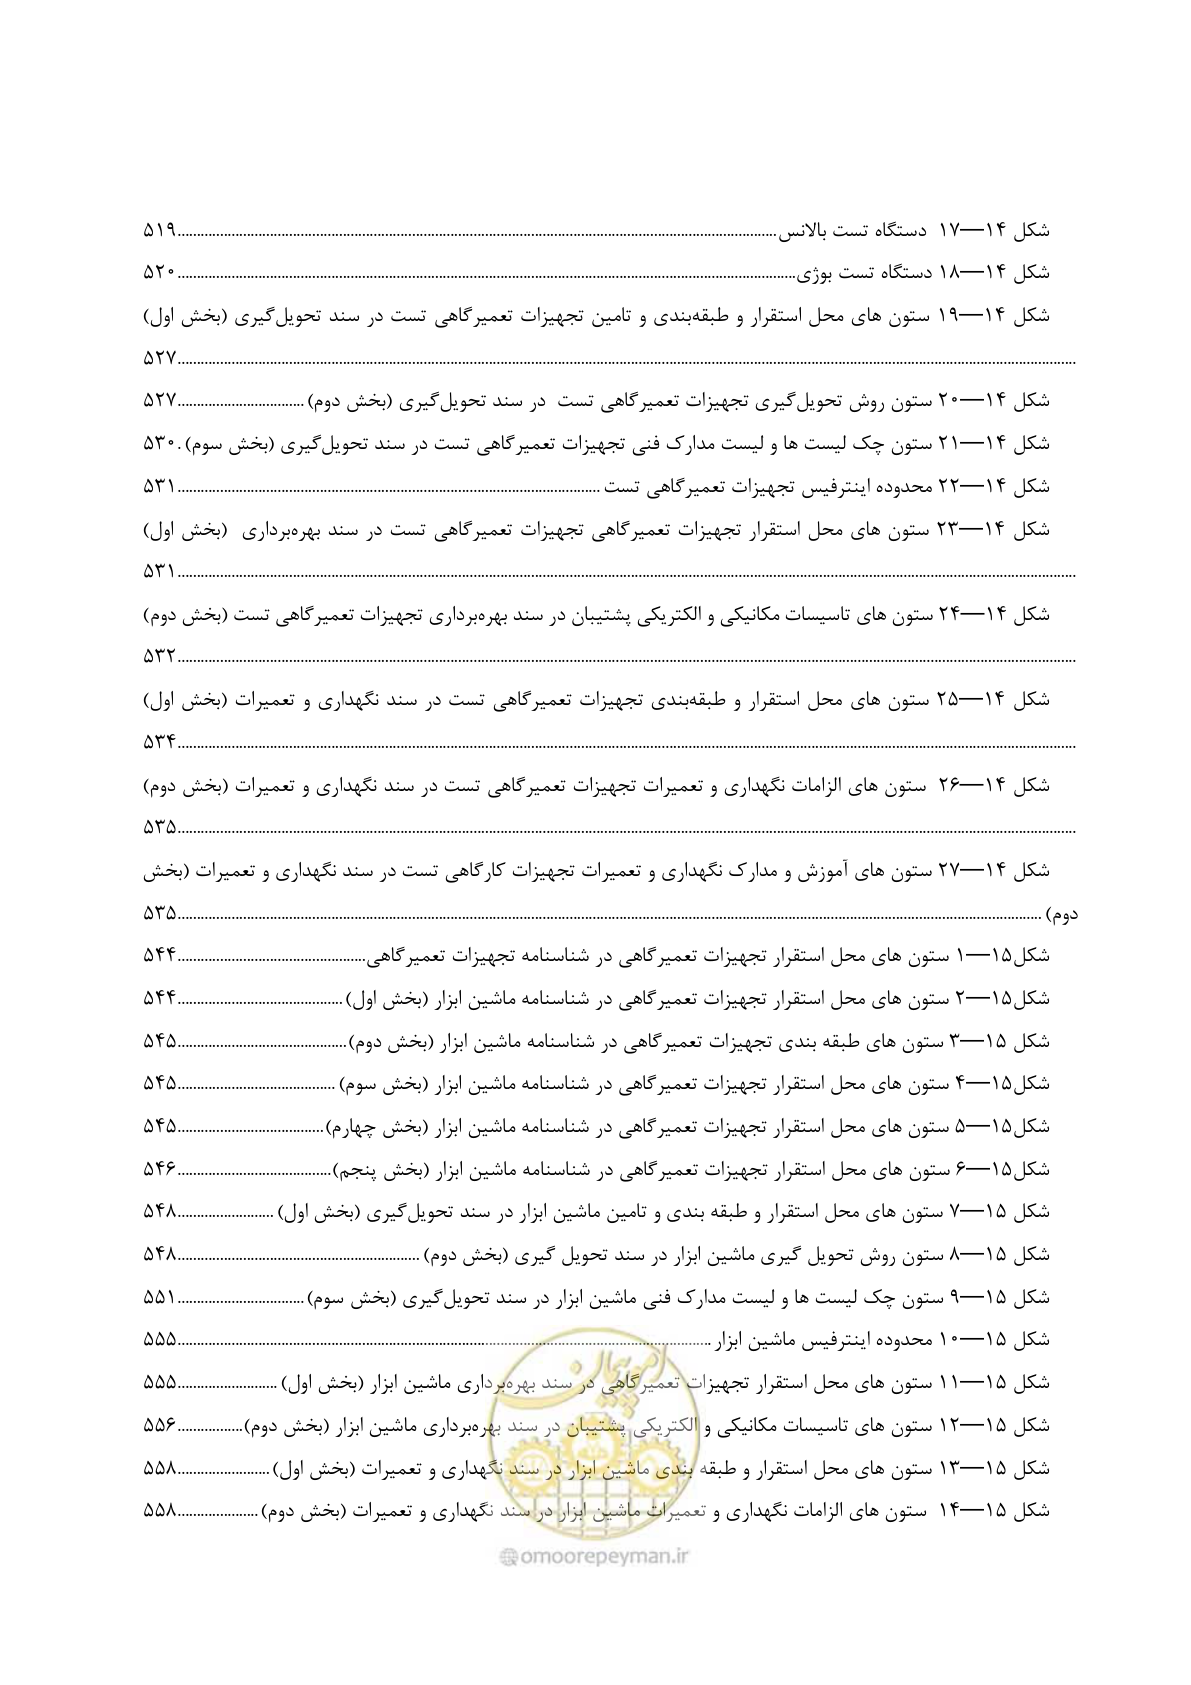 شکل ۱۴—۱۷  دستگاه تست بالانس........................................۵۱۹
شکل ۱۴—۱۸ دستگاه تست بوژی........................................۵۲۰
شکل ۱۴—۱۹ ستون های محل استقرار و طبقه‌بندی و تامین تجهیزات تعمیرگاهی تست در سند تحویل‌گیری (بخش اول)
........................................۵۲۷
شکل ۱۴—۲۰ ستون روش تحویل‌گیری تجهیزات تعمیرگاهی تست  در سند تحویل‌گیری (بخش دوم)........................................۵۲۷
شکل ۱۴—۲۱ ستون چک لیست ها و لیست مدارک فنی تجهیزات تعمیرگاهی تست در سند تحویل‌گیری (بخش سوم).۵۳۰
شکل ۱۴—۲۲ محدوده اینترفیس تجهیزات تعمیرگاهی تست........................................۵۳۱
شکل ۱۴—۲۳ ستون های محل استقرار تجهیزات تعمیرگاهی تجهیزات تعمیرگاهی تست در سند بهره‌برداری  (بخش اول)
........................................۵۳۱
شکل ۱۴—۲۴ ستون های تاسیسات مکانیکی و الکتریکی پشتیبان در سند بهره‌برداری تجهیزات تعمیرگاهی تست (بخش دوم)
........................................۵۳۲
شکل ۱۴—۲۵ ستون های محل استقرار و طبقه‌بندی تجهیزات تعمیرگاهی تست در سند نگهداری و تعمیرات (بخش اول)
........................................۵۳۴
شکل ۱۴—۲۶  ستون های الزامات نگهداری و تعمیرات تجهیزات تعمیرگاهی تست در سند نگهداری و تعمیرات (بخش دوم)
........................................۵۳۵
شکل ۱۴—۲۷ ستون های آموزش و مدارک نگهداری و تعمیرات تجهیزات کارگاهی تست در سند نگهداری و تعمیرات (بخش
دوم)........................................۵۳۵
شکل۱۵—۱ ستون های محل استقرار تجهیزات تعمیرگاهی در شناسنامه تجهیزات تعمیرگاهی........................................۵۴۴
شکل۱۵—۲ ستون های محل استقرار تجهیزات تعمیرگاهی در شناسنامه ماشین ابزار (بخش اول)........................................۵۴۴
شکل ۱۵—۳ ستون های طبقه بندی تجهیزات تعمیرگاهی در شناسنامه ماشین ابزار (بخش دوم)........................................۵۴۵
شکل۱۵—۴ ستون های محل استقرار تجهیزات تعمیرگاهی در شناسنامه ماشین ابزار (بخش سوم)........................................۵۴۵
شکل۱۵—۵ ستون های محل استقرار تجهیزات تعمیرگاهی در شناسنامه ماشین ابزار (بخش چهارم)........................................۵۴۵
شکل۱۵—۶ ستون های محل استقرار تجهیزات تعمیرگاهی در شناسنامه ماشین ابزار (بخش پنجم)........................................۵۴۶
شکل ۱۵—۷ ستون های محل استقرار و طبقه بندی و تامین ماشین ابزار در سند تحویل‌گیری (بخش اول)........................................۵۴۸
شکل ۱۵—۸ ستون روش تحویل گیری ماشین ابزار در سند تحویل گیری (بخش دوم)........................................۵۴۸
شکل ۱۵—۹ ستون چک لیست ها و لیست مدارک فنی ماشین ابزار در سند تحویل‌گیری (بخش سوم)........................................۵۵۱
شکل ۱۵—۱۰ محدوده اینترفیس ماشین ابزار........................................۵۵۵
شکل ۱۵—۱۱ ستون های محل استقرار تجهیزات تعمیرگاهی در سند بهره‌برداری ماشین ابزار (بخش اول)........................................۵۵۵
شکل ۱۵—۱۲ ستون های تاسیسات مکانیکی و الکتریکی پشتیبان در سند بهره‌برداری ماشین ابزار (بخش دوم)........................................۵۵۶
شکل ۱۵—۱۳ ستون های محل استقرار و طبقه بندی ماشین ابزار در سند نگهداری و تعمیرات (بخش اول)........................................۵۵۸
شکل ۱۵—۱۴  ستون های الزامات نگهداری و تعمیرات ماشین ابزار در سند نگهداری و تعمیرات (بخش دوم)........................................۵۵۸
امورپیمان
@omoorepeyman.ir